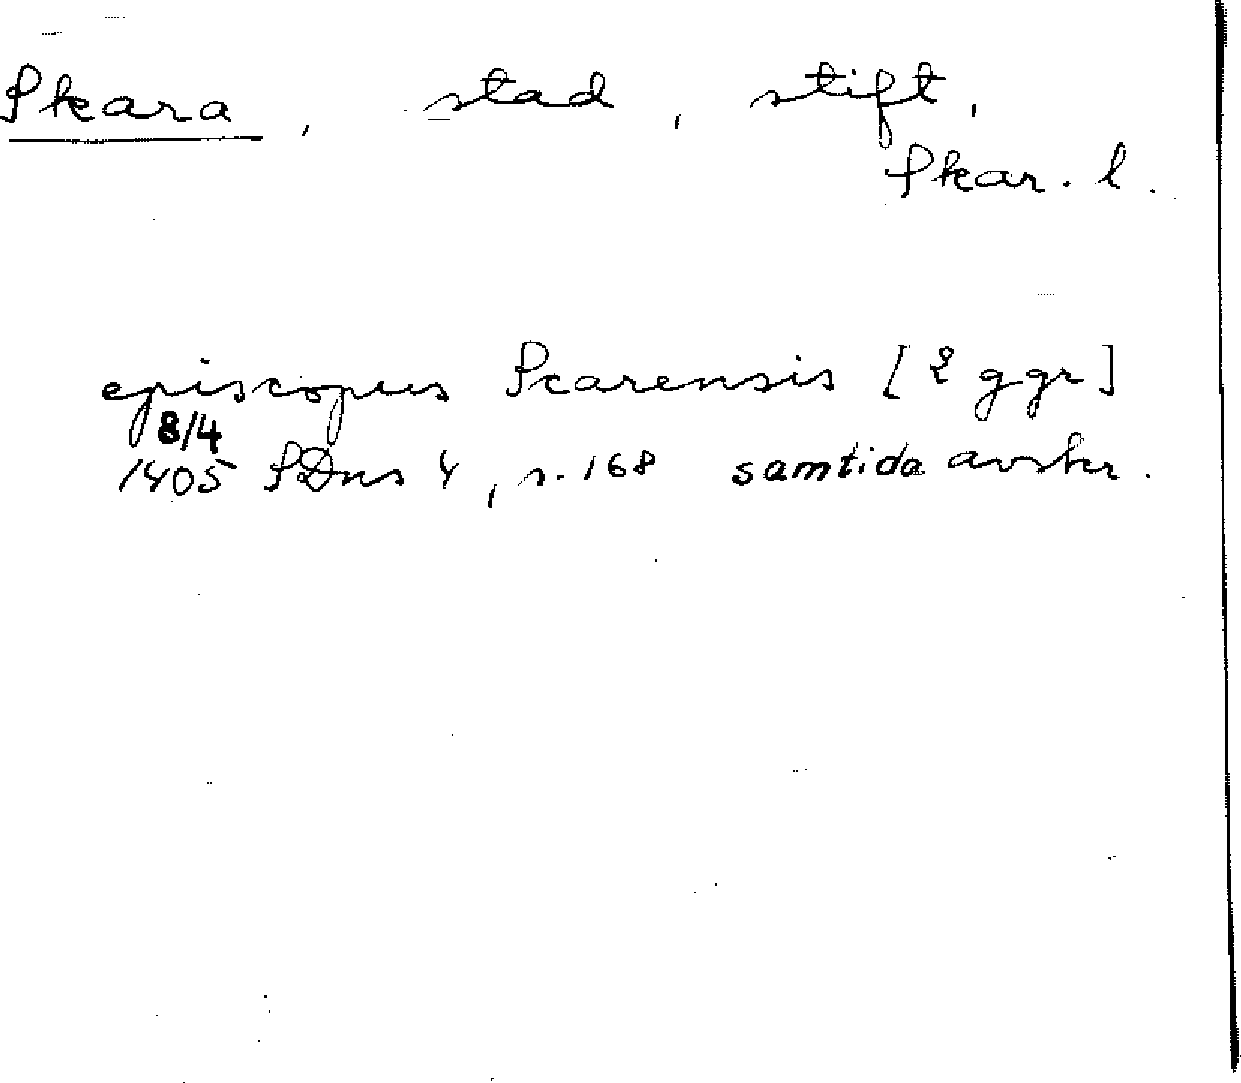 Skara, stad, stift,
Skar. l.
episcopus Scarensis [2 ggr]
8/4
1405 SDns 4, s. 168 samtida avskr.